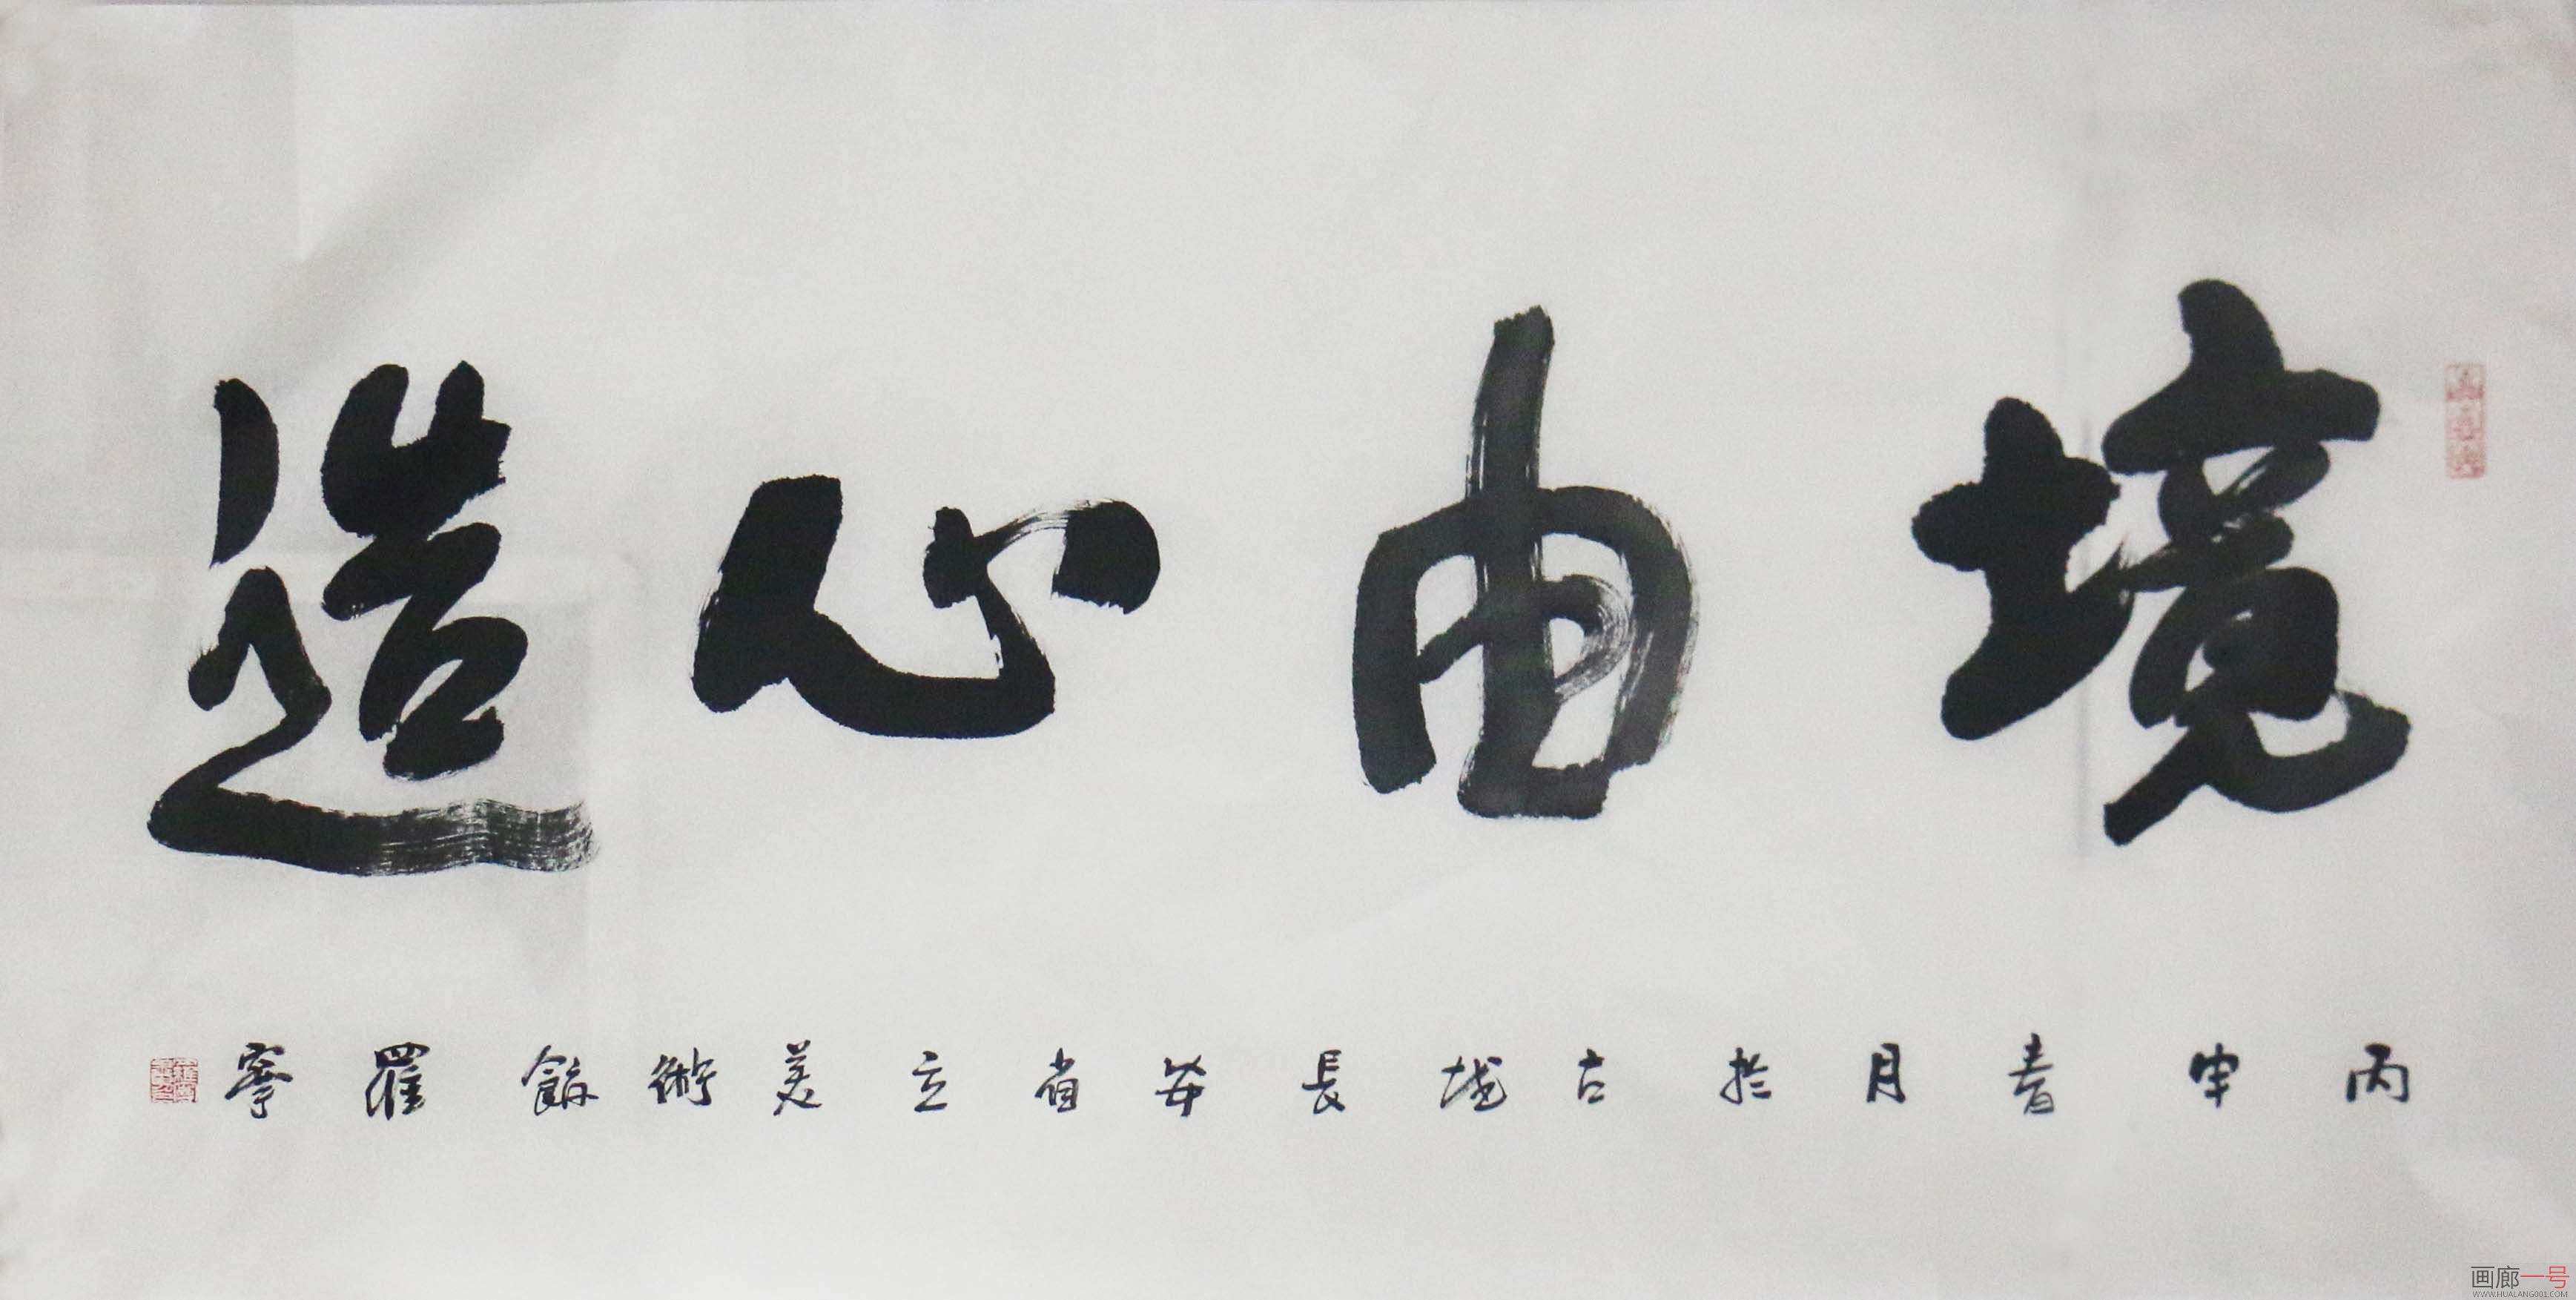 境由心造
丙申春月於古城長安省立美術館羅寧
画廊一号
WWW.HUALANG001.COM